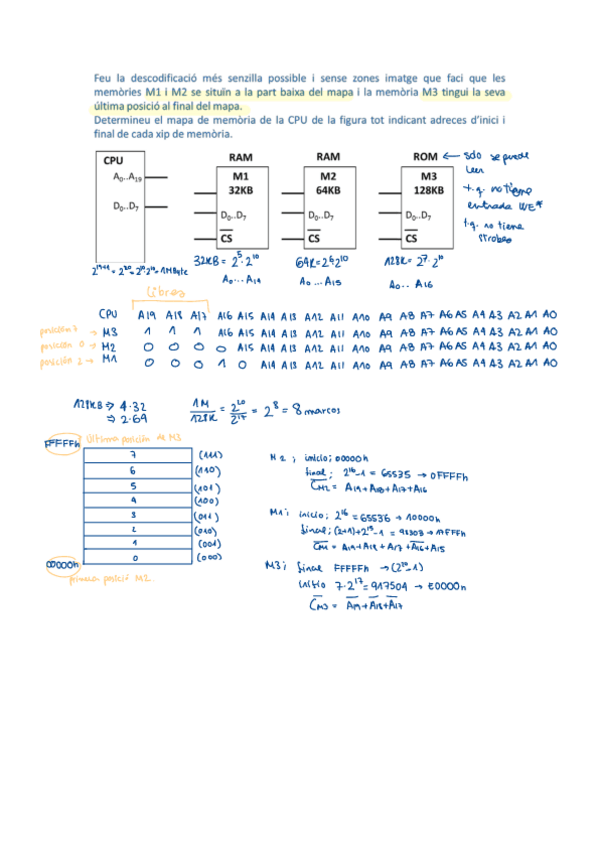 Feu la descodificació més senzilla possible i sense zones imatge que faci que les
memòries M1 i M2 se situïn a la part baixa del mapa i la memòria M3 tingui la seva
última posició al final del mapa.
Determineu el mapa de memòria de la CPU de la figura tot indicant adreces d'inici i
final de cada xip de memòria.
CPU
A0..A19
D0..D7
RAM
M1
32KB
D0..D7
CS
RAM
M2
64KB
D0..D7
CS
ROM
M3
128KB
D0..D7
CS
← sdo se puede
leer
t.q. no tiene
entrada WE*
t.q. no tiene
strobes
2^19+1 = 2^20 = 2^10·2^10 = 1MByte
32KB = 2^5·2^10
A0...A14
64K = 2^6·2^10
A0...A15
128K = 2^7·2^10
A0..A16
libres
CPU A19 A18 A17 A16 A15 A14 A13 A12 A11 A10 A9 A8 A7 A6 A5 A4 A3 A2 A1 A0
posicion 7 → M3 1 1 1 A16 A15 A14 A13 A12 A11 A10 A9 A8 A7 A6 A5 A4 A3 A2 A1 A0
posicion 0 → M2 0 0 0 0 A15 A14 A13 A12 A11 A10 A9 A8 A7 A6 A5 A4 A3 A2 A1 A0
posición 2 → M1 0 0 0 1 0 A14 A13 A12 A11 A10 A9 A8 A7 A6 A5 A4 A3 A2 A1 A0
128KB ⇒ 4·32
⇒ 2·64
1M/128K = 2^20/2^17 = 2^8 = 8 marcos
FFFFFh Última posición de M3
7 (111)
6 (110)
5 (101)
4 (100)
3 (011)
2 (010)
1 (001)
0 (000)
00000h
primera posició M2.
M2; inicio; 00000h
final; 2^16-1 = 65535 → 0FFFFh
CM2 = A19+A18+A17+A16
M1; inicio; 2^16 = 65536 → 10000h
CM1 = A19+A18+A17+A16+A15
M3; final FFFFFh → (2^20-1)
inicio 7·2^17 = 917504 → E0000h
CM3 = A19+A18+A17